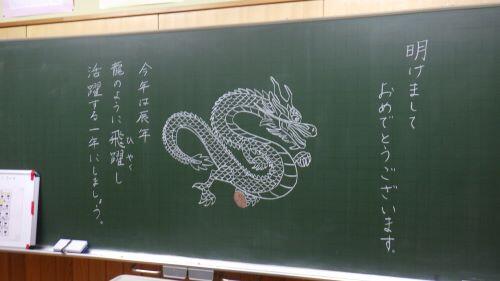 明けまして
おめでとうございます。
今年は辰年
龍のように飛躍し
ひやく
活躍する一年にしましょう。